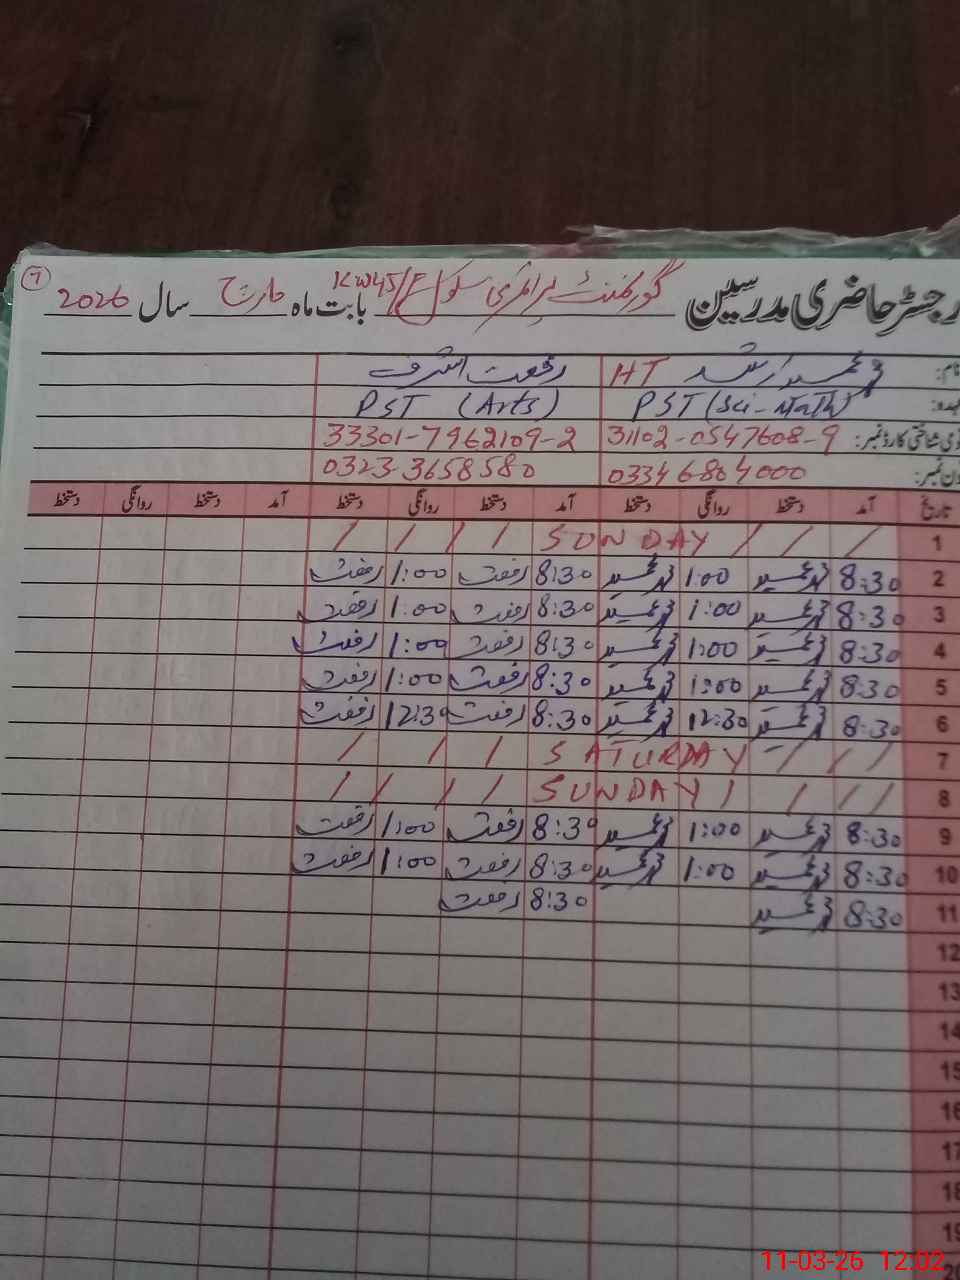 7
رجسٹر حاضری مدرسین گورنمنٹ پرائمری سکول 45/KW بابت ماہ مارچ سال 2026
نام: محمد ارشد HT رفعت اشرف
عہدہ: PST (Sci-Math) PST (Arts)
قومی شناختی کارڈ نمبر: 31102-0547608-9 33301-7962109-2
فون نمبر: 03346804000 0323-3658580
تاریخ آمد دستخط روانگی دستخط آمد دستخط روانگی دستخط آمد دستخط روانگی دستخط
1 / / / SUNDAY / / / /
2 8:30 1:00 8:30 رفعت 1:00 رفعت
3 8:30 1:00 8:30 رفعت 1:00 رفعت
4 8:30 1:00 8:30 رفعت 1:00 رفعت
5 8:30 1:00 8:30 رفعت 1:00 رفعت
6 8:30 12:30 8:30 رفعت 12:30 رفعت
7 / / / / SATURDAY / / /
8 / / / / SUNDAY / / / /
9 8:30 1:00 8:30 رفعت 1:00 رفعت
10 8:30 1:00 8:30 رفعت 1:00 رفعت
11 8:30 8:30 رفعت
12
13
14
15
16
17
18
19
20
11-03-26 12:02